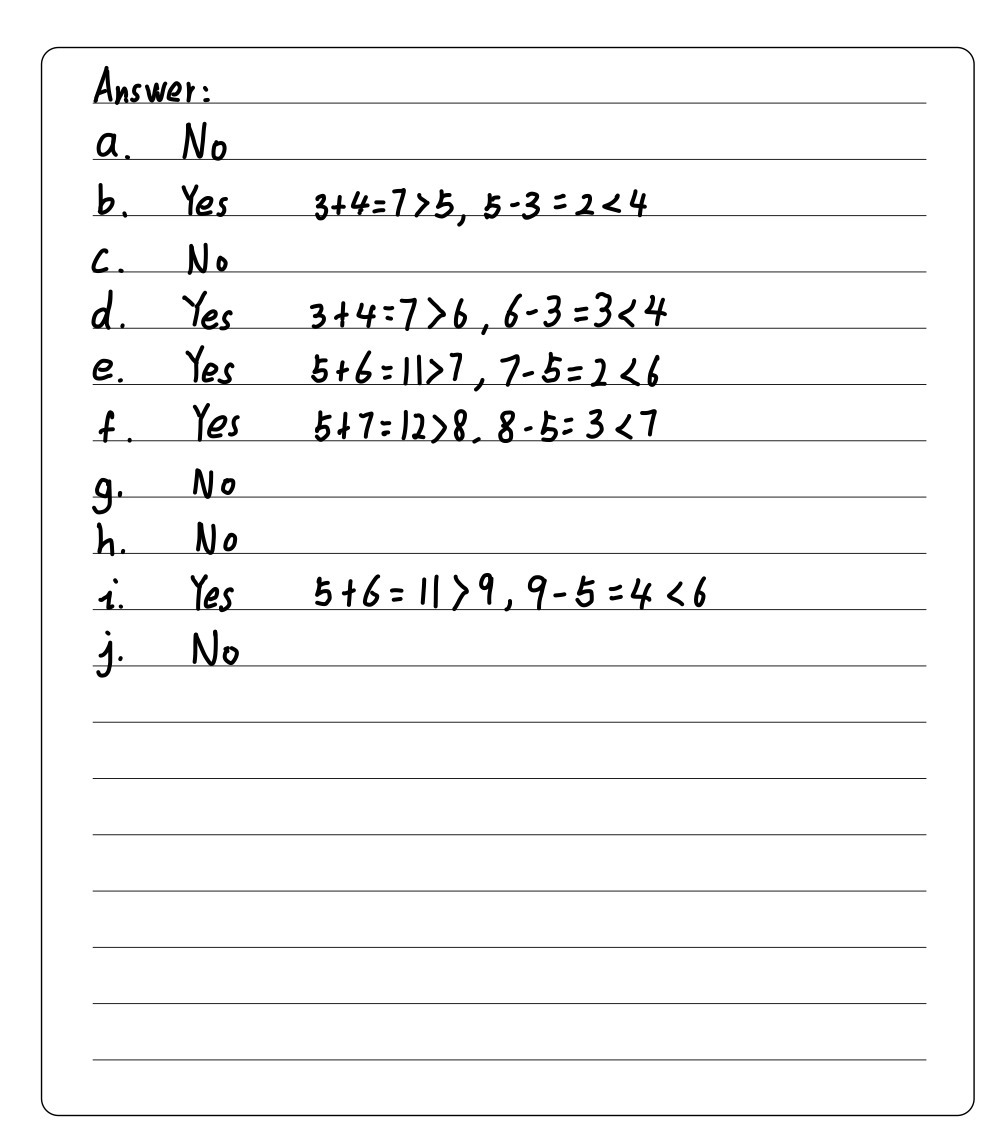 Answer:
a. No
b. Yes 3+4=7>5, 5-3=2<4
c. No
d. Yes 3+4=7>6, 6-3=3<4
e. Yes 5+6=11>7, 7-5=2<6
f. Yes 5+7=12>8, 8-5=3<7
g. No
h. No
i. Yes 5+6=11>9, 9-5=4<6
j. No